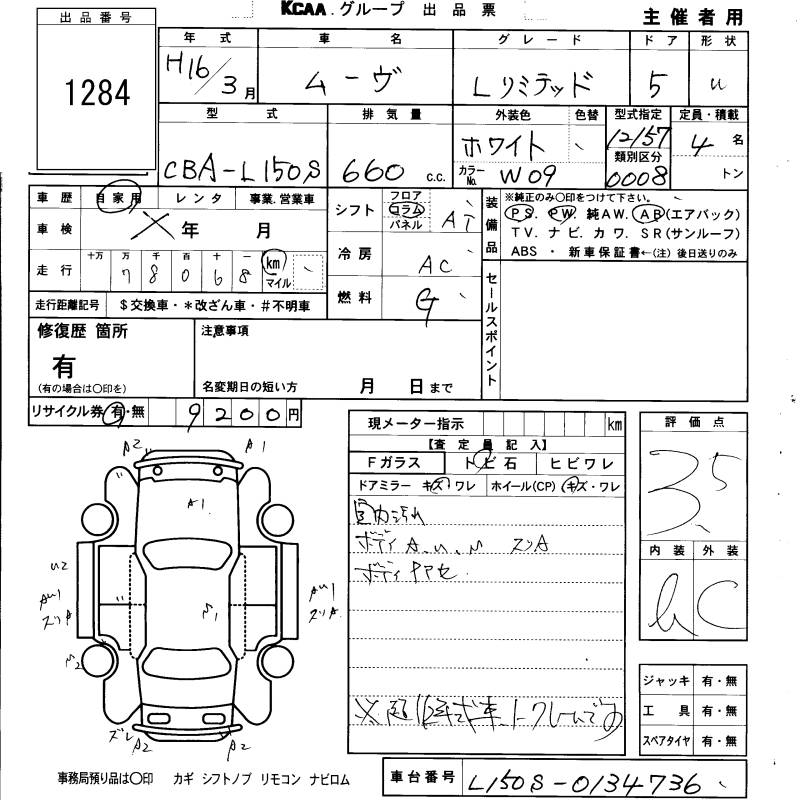 KCAA.グループ 出品票
主催者用
出品番号
1284
年式 車名 グレード ドア 形状
H16/3月 ムーヴ Lリミテッド 5
型式 排気量 外装色 色替 型式指定 定員・積載
CBA-L150S 660 c.c. ホワイト 12157 4名
カラーNo. W09 類別区分 0008 トン
車歴 自家用 レンタ 事業.営業車
車検 年 月
走行 十万 万 千 百 十 一 km マイル
78068
走行距離記号 $交換車・*改ざん車・#不明車
シフト フロア コラム パネル AT
冷房 AC
燃料 G
装備品
※純正のみ〇印をつけて下さい。
PS. PW. 純AW. AB(エアバック)
TV. ナビ. カワ. SR(サンルーフ)
ABS ・ 新車保証書←(注)後日送りのみ
セールスポイント
修復歴 箇所
有
(有の場合は〇印を)
注意事項
名変期日の短い方 月 日まで
リサイクル券 有・無 9200円
現メーター指示 km
【査定員記入】
Fガラス トビ石 ヒビワレ
ドアミラー キズ・ワレ ホイール(CP) キズ・ワレ
ボディ A.U.
ボディヤケセ
評価点
3.5
内装 外装
C
A2 A1
A1
U2
AU1 AU1
ズリA ズリA
ズレ A2 A2
ジャッキ 有・無
工具 有・無
スペアタイヤ 有・無
事務局預り品は〇印 カギ シフトノブ リモコン ナビロム
車台番号 L150S-0134736